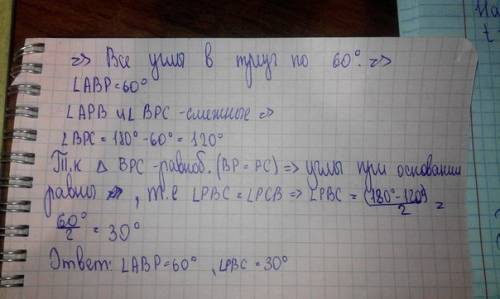 => Все углы в треуг по 60°. =>
∠ABP = 60°
∠APB и ∠BPC - смежные =>
∠BPC = 180° - 60° = 120°
Т.к △ BPC - равноб. (BP = PC) => углы при основании
равны, т.е ∠PBC = ∠PCB => ∠PBC = (180° - 120°)/2 =
60°/2 = 30°
Ответ: ∠ABP = 60°, ∠PBC = 30°